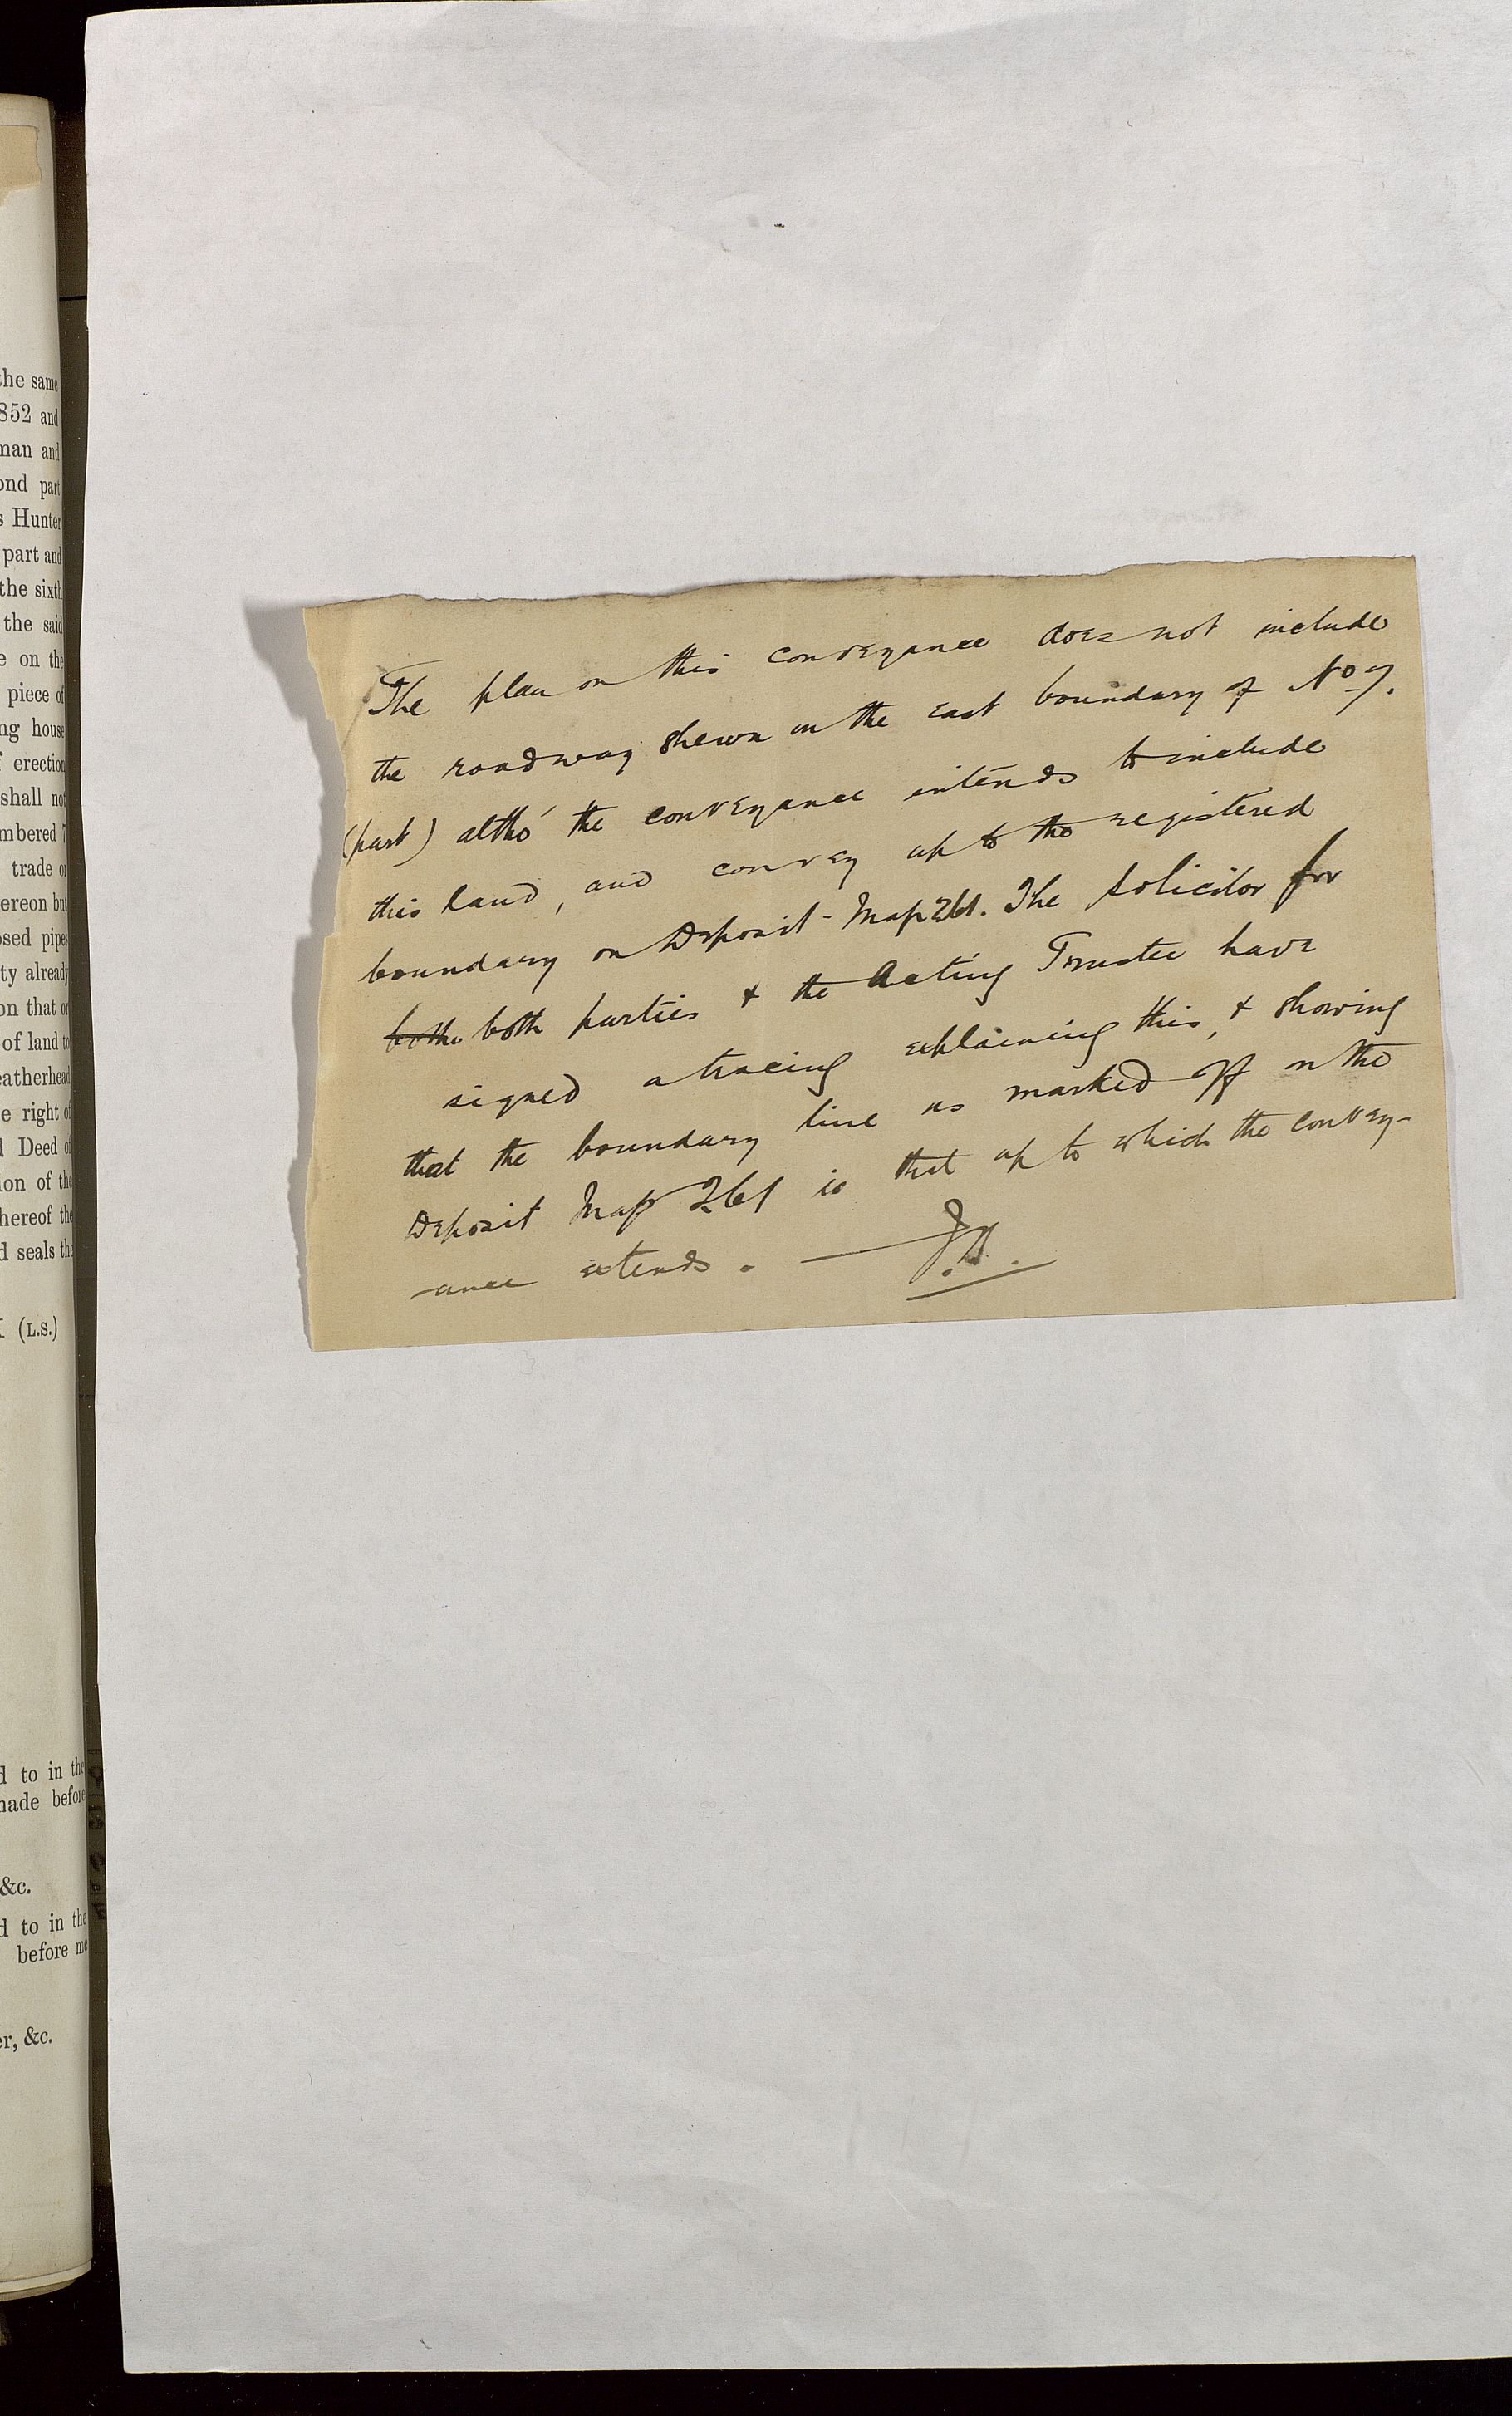 the same
852 and
man and
ond part
s Hunter
part and
the sixth
the said
e on the
piece of
ng house
f erection
shall not
mbered 7
trade or
ereon but
osed pipes
ty already
on that or
of land to
eatherhead
e right of
d Deed of
ion of the
hereof the
d seals the
(L.S.)
d to in the
made before
&c.
d to in the
before me
er, &c.
The plan on this conveyance does not include
the roadway shewn on the east boundary of No 7.
(part) altho' the conveyance intends to include
this land, and convey up to the registered
boundary on Deposit-Map 261. The solicitor for
both both parties & the Acting Trustee have
signed a tracing explaining this, & showing
that the boundary line as marked off on the
Deposit Map 261 is that up to which the convey-
-ance extends.